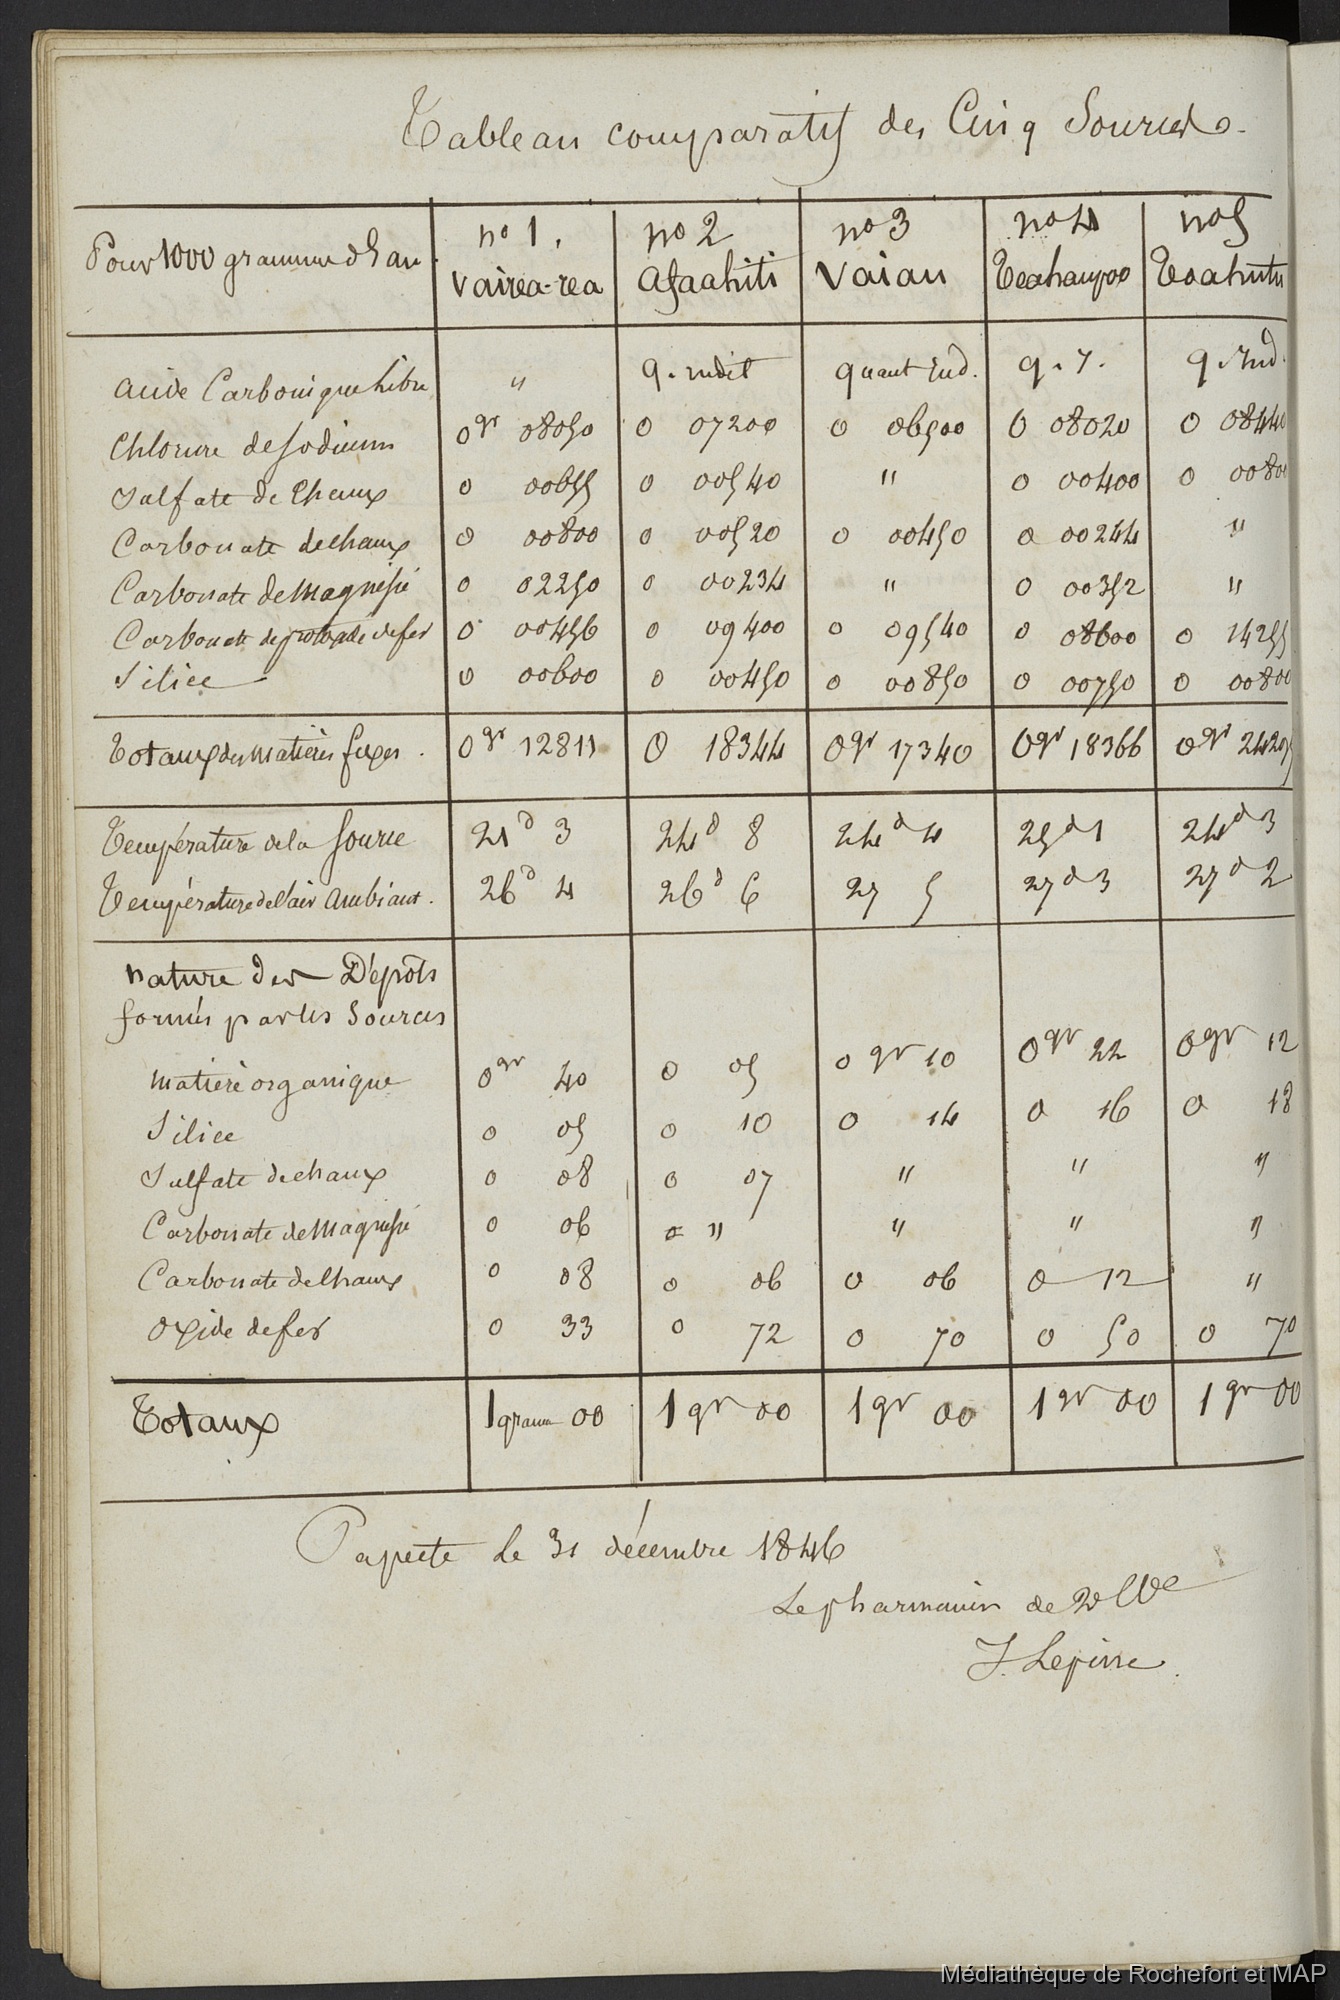 Tableau comparatif des Cinq Sources.
Pour 1000 grammes d'Eau no 1. Vairea-rea no 2 Afaahiti no 3 Vaiau no 4 Teahaupoo no 5 Teahutu
Acide Carbonique libre " q. indét quant Ind. q. I. q. Ind.
Chlorure de Sodium 0gr 08050 0 07200 0 06500 0 08020 0 08440
Sulfate de Chaux 0 00655 0 00540 " 0 00400 0 00800
Carbonate de chaux 0 00800 0 00520 0 00450 0 00244 "
Carbonate de Magnésie 0 02250 0 00234 " 0 00352 "
Carbonate de protoxide de fer 0 00456 0 09400 0 09540 0 08600 0 14255
Silice 0 00600 0 00450 0 00850 0 00750 0 00800
Totaux des Matières fixes. 0gr 12811 0 18344 0gr 17340 0gr 18366 0gr 24295
Température de la Source 21d 3 24d 8 24d 4 25d 1 24d 3
Température de l'air Ambiant. 26d 4 26d 6 27 5 27d 3 27d 2
Nature des Dépôts
formés par les Sources
Matière organique 0gr 40 0 05 0gr 10 0gr 22 0gr 12
Silice 0 05 0 10 0 14 0 16 0 18
Sulfate de chaux 0 08 0 07 " " "
Carbonate de Magnésie 0 06 0 " " " "
Carbonate de Chaux 0 08 0 06 0 06 0 12 "
Oxide de fer 0 33 0 72 0 70 0 50 0 70
Totaux 1 gramme 00 1gr 00 1gr 00 1gr 00 1gr 00
Papeete le 31 décembre 1846
Le pharmacien de 2e Cle
J. Lepine.
Médiathèque de Rochefort et MAP